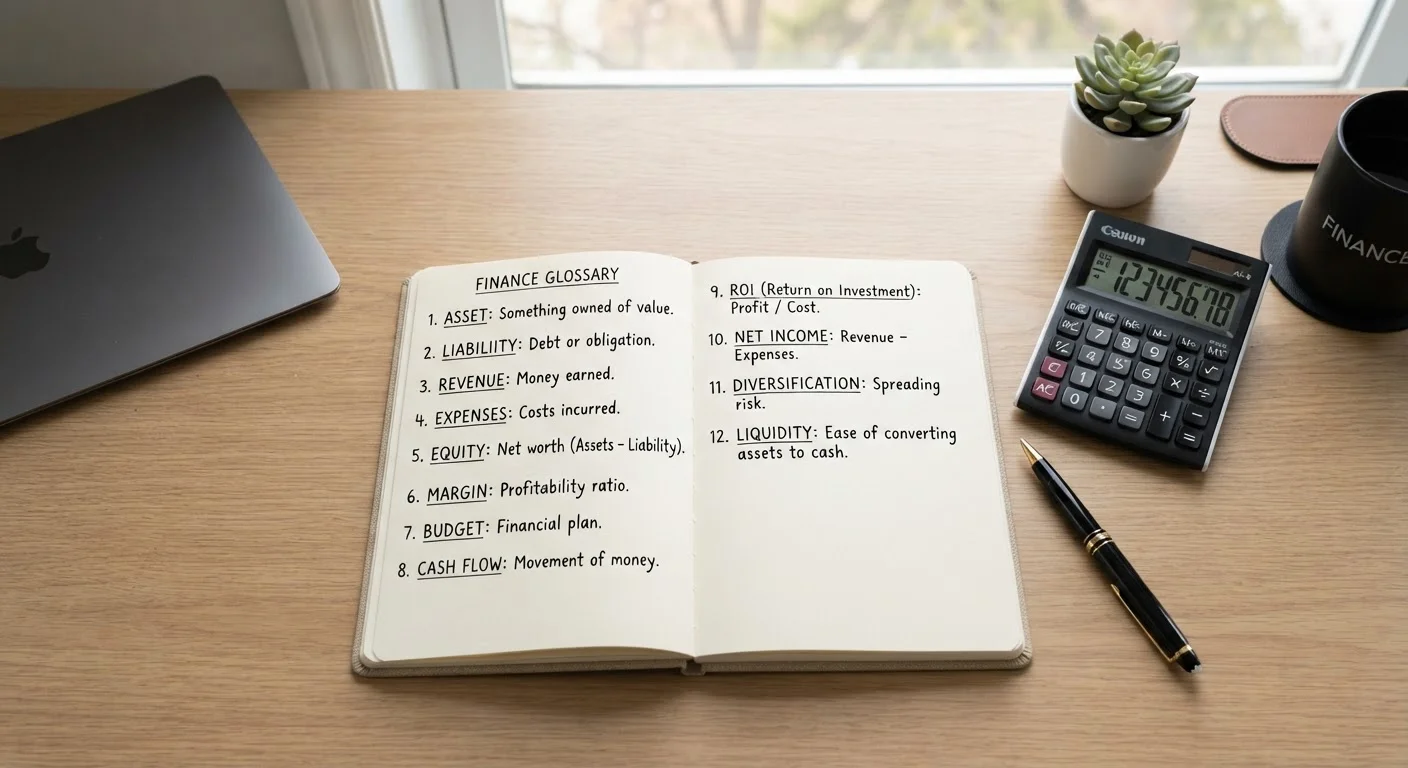 FINANCE GLOSSARY
1. ASSET: Something owned of value.
2. LIABILIITY: Debt or obligation.
3. REVENUE: Money earned.
4. EXPENSES: Costs incurred.
5. EQUITY: Net worth (Assets – Liability).
6. MARGIN: Profitability ratio.
7. BUDGET: Financial plan.
8. CASH FLOW: Movement of money.
9. ROI (Return on Investment):
Profit / Cost.
10. NET INCOME: Revenue –
Expenses.
11. DIVERSIFICATION: Spreading
risk.
12. LIQUIDITY: Ease of converting
assets to cash.
Canon
12345678
7 8 9 %
4 5 6 × ÷
1 2 3
AC 0 · = + =
FINANCE